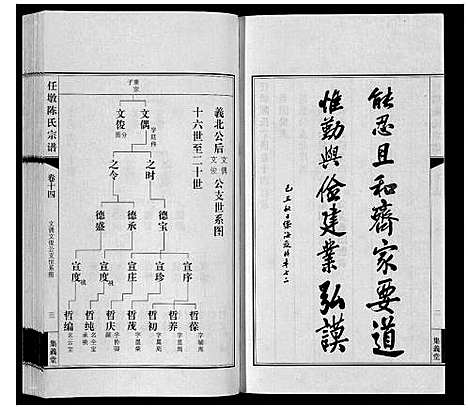 能忍且和齊家要道
惟勤與儉建業弘謨
集義堂
義北公后文偶文俊公支世系图
十六世至二十世
文偶
文俊
之时
之令
德宝
德承
德盛
宣序
宣珍
宣庄
宣度
宣度
哲葆
哲养
哲初
哲茂
哲庆
哲纯
哲编
任墩陈氏宗谱
卷十四
文偶文俊公支世系图
三
集義堂